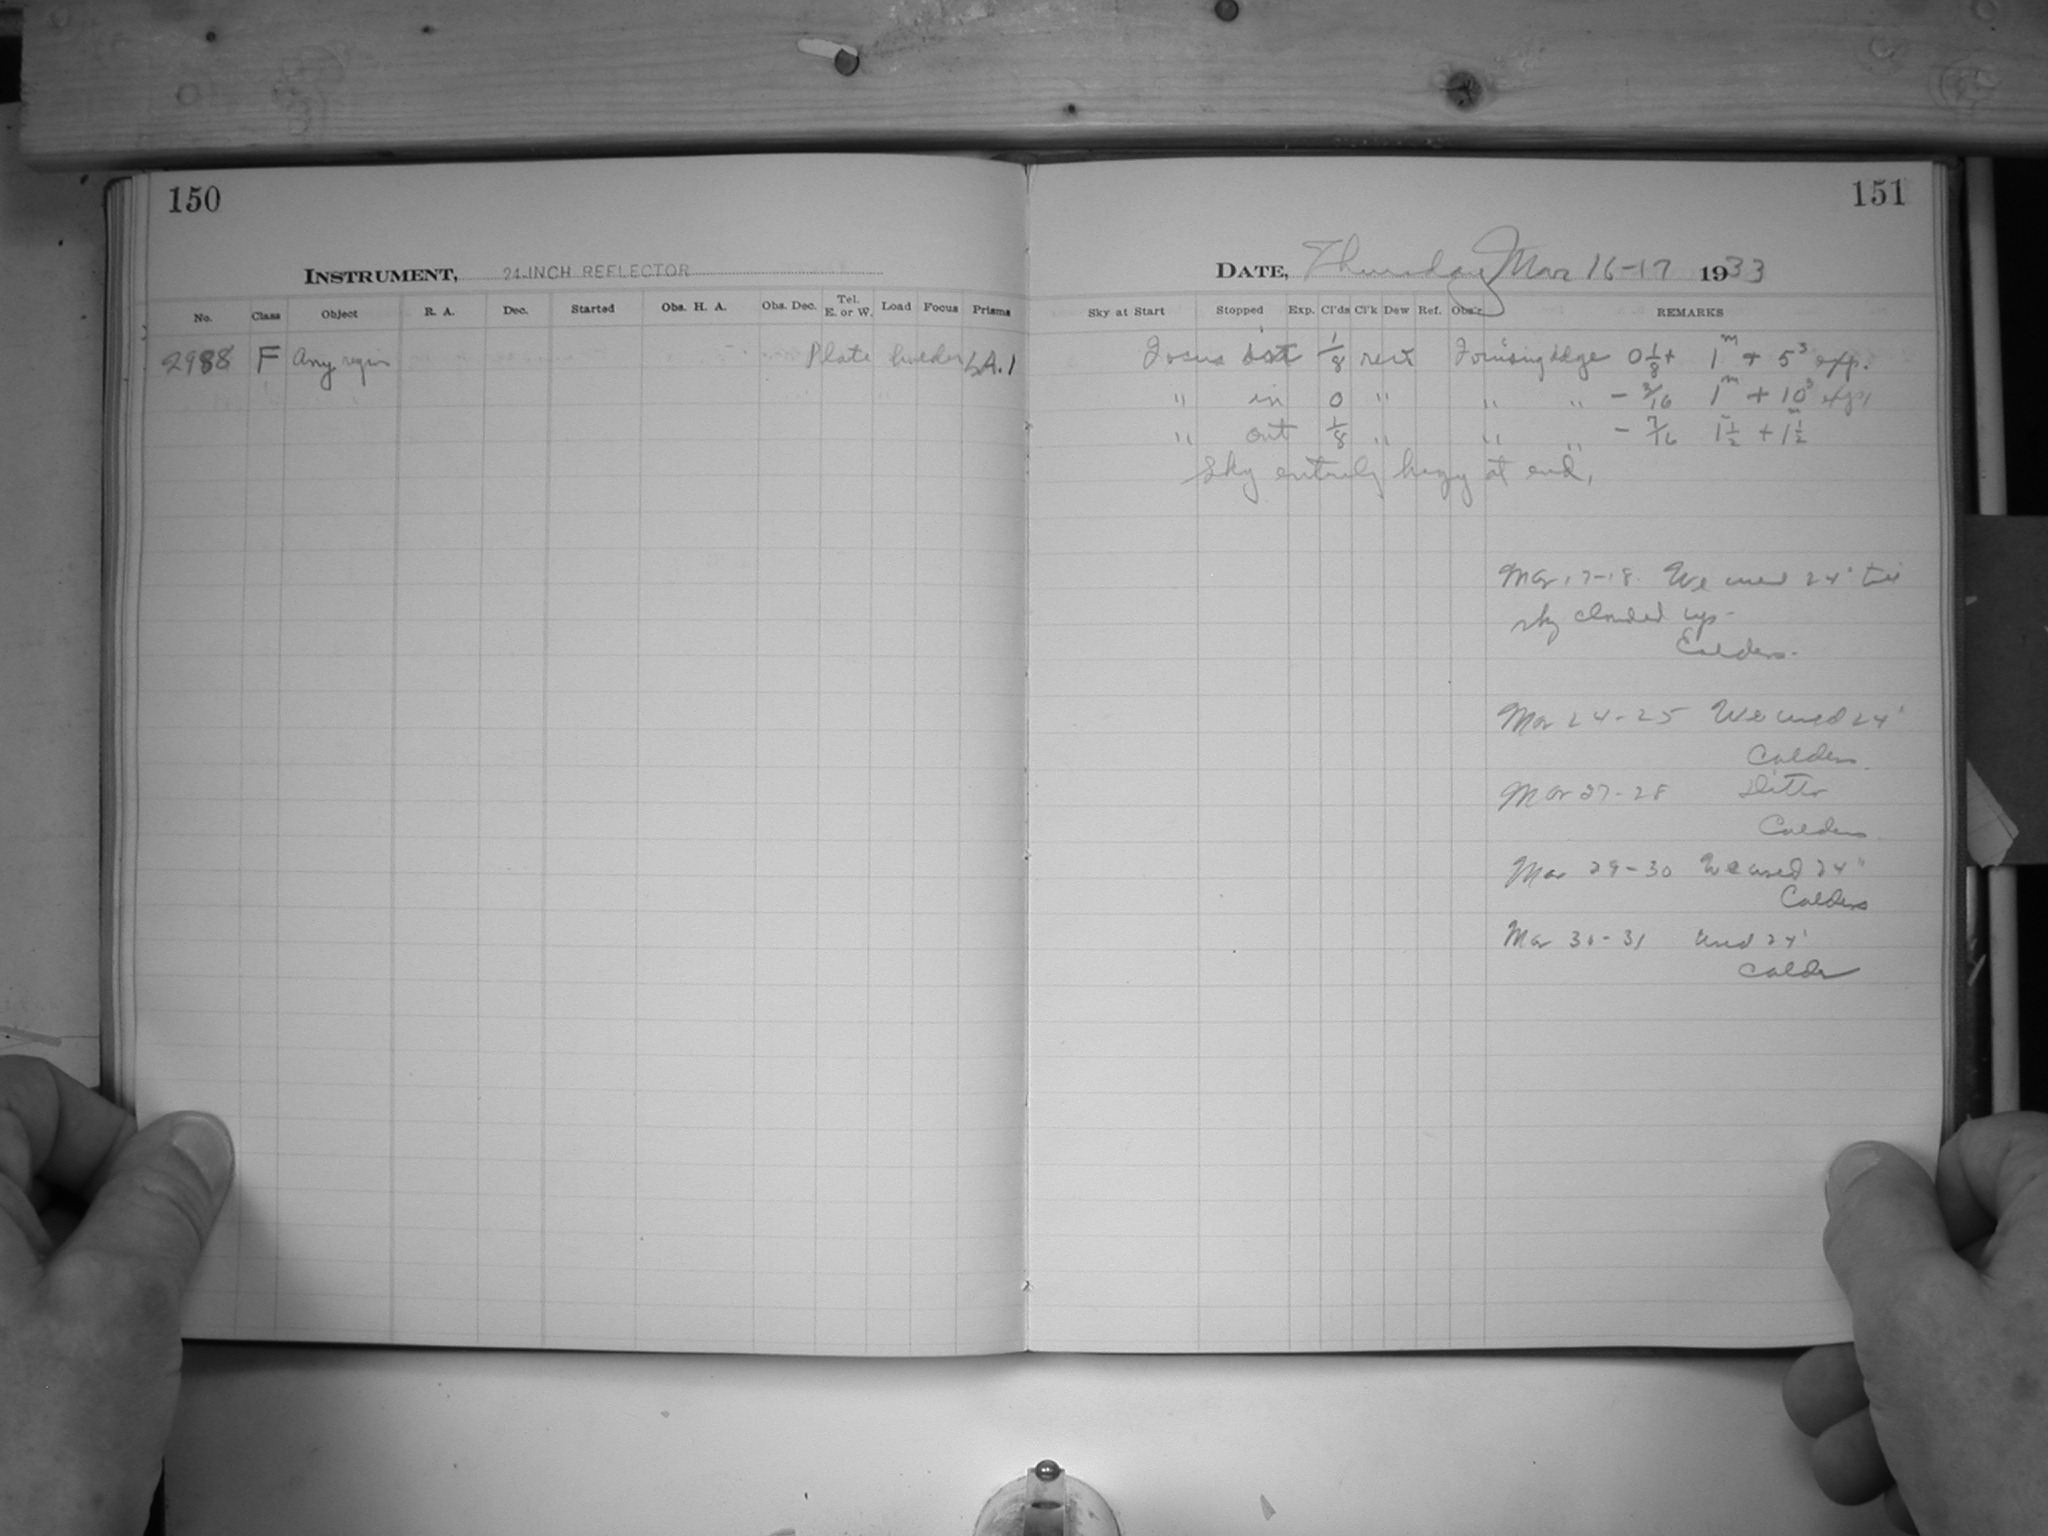 150
INSTRUMENT, 24-INCH REFLECTOR
No. Class Object R. A. Dec. Started Obs. H. A. Obs. Dec. Tel. E. or W. Load Focus Prisms
2988 F Any region Plate holder A.1
151
DATE, Thursday Mar 16-17 1933
Sky at Start Stopped Exp. Cl'ds Cl'k Dew Ref. Obs'r. REMARKS
Focus 1/8 Focusing edge 0 1/8 + 1m + 5s exp.
" in 0 " " " - 3/16 1m + 10s
" out 1/8 " " " - 7/16 1 1/2 + 1 1/2
Sky entirely hazy at end.
Mar 17-18. We used 24" till
sky clouded up-
Calders.
Mar 24-25 We used 24"
Calders.
Mar 27-28 Ditto
Calders
Mar 29-30 We used 24"
Calders
Mar 30-31 Used 24"
Calder